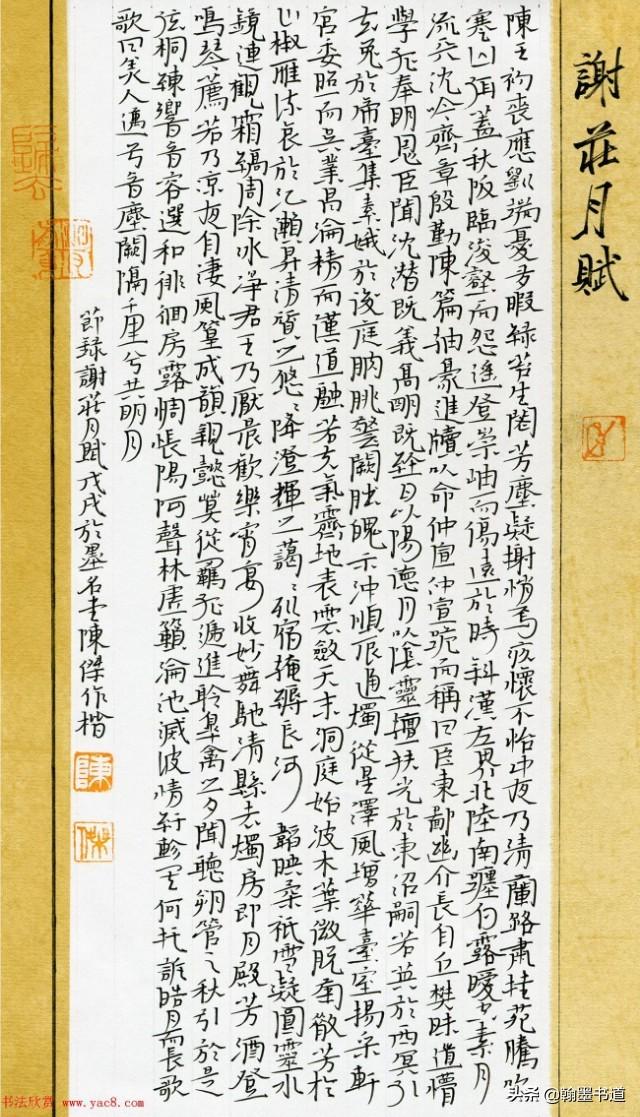 謝莊月賦
陳王初喪應劉端憂多暇綠苔生閣芳塵凝榭悄焉疚懷不怡中夜乃清蘭路肅桂苑騰吹
寒山弭蓋秋阪臨浚壑而怨遙登崇岫而傷遠於時斜漢左界北陸南躔白露曖空素月
流天沈吟齊章殷勤陳篇抽毫進牘以命仲宣仲宣跪而稱曰臣東鄙幽介長自丘樊昧道懵
學孤奉明恩臣聞沈潛既義高明既經日以陽德月以陰靈擅扶光於東沼嗣若英於西冥引
玄兔於帝臺集素娥於後庭朒朓警闕朏魄示沖順辰通燭從星澤風增華臺室揚采軒
宮委照而吳業昌淪精而漢道融若夫氣霽地表雲斂天末洞庭始波木葉微脫菊散芳於
山椒雁流哀於江瀨昇清質之悠悠降澄輝之藹藹列宿掩縟長河韜映柔祇雪凝圓靈水
鏡連觀霜縞周除冰淨君王乃厭晨歡樂宵宴收妙舞馳清縣去燭房即月殿芳酒登
鳴琴薦若乃涼夜自凄風篁成韻親懿莫從羈孤遞進聆皋禽之夕聞聽朔管之秋引於是
弦桐練響音容選和徘徊房露惆悵陽阿聲林虛籟淪池滅波情紆軫其何托訴皓月而長歌
歌曰美人邁兮音塵闕隔千里兮共明月
節錄謝莊月賦戊戌於墨名堂陳傑作楷
陳
傑
书法欣赏 www.yac8.com
头条 @翰墨书道